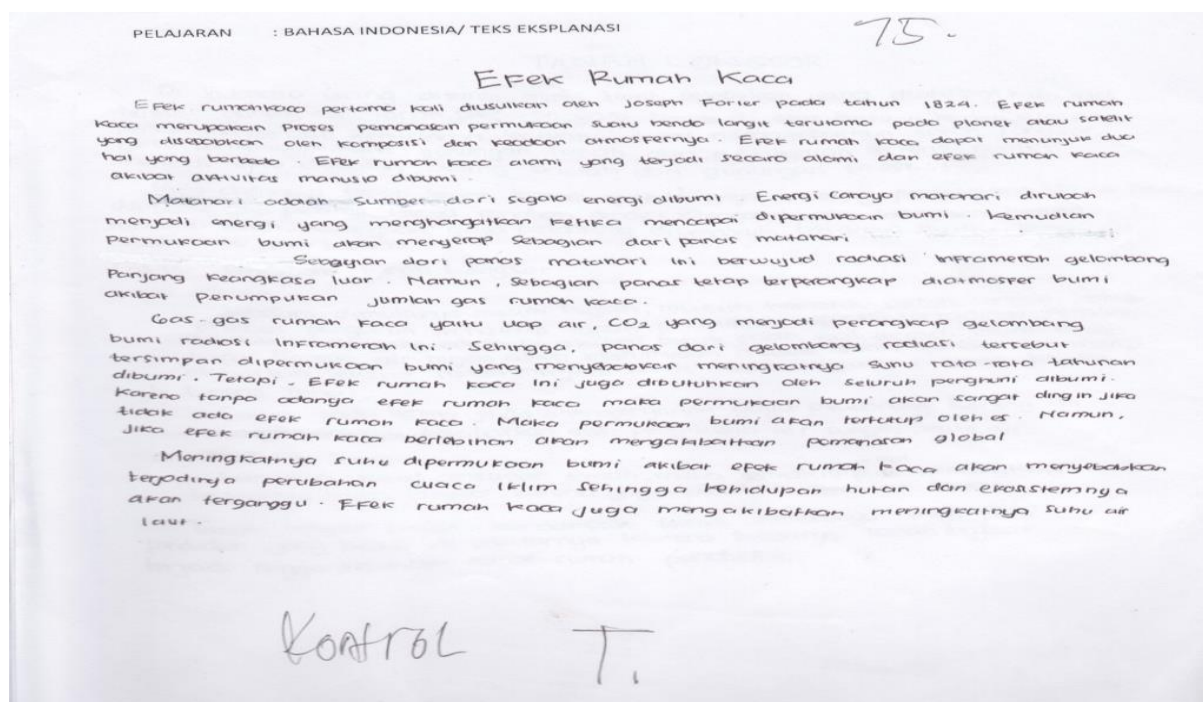 PELAJARAN : BAHASA INDONESIA/ TEKS EKSPLANASI
75.
Efek Rumah Kaca
Efek rumahkaca pertama kali diusulkan oleh Joseph Forier pada tahun 1824. Efek rumah
kaca merupakan proses pemanasan permukaan suatu benda langit terutama pada planet atau satelit
yang disebabkan oleh komposisi dan keadaan atmosfernya. Efek rumah kaca dapat menunjuk dua
hal yang berbeda. Efek rumah kaca alami yang terjadi secara alami dan efek rumah kaca
akibat aktivitas manusia dibumi.
Matahari adalah sumber dari segala energi dibumi. Energi cahaya matahari dirubah
menjadi energi yang menghangatkan ketika mencapai dipermukaan bumi. Kemudian
permukaan bumi akan menyerap sebagian dari panas matahari
Sebagian dari panas matahari ini berwujud radiasi inframerah gelombang
Panjang keangkasa luar. Namun, sebagian panas tetap terperangkap diatmosfer bumi
akibat penumpukan jumlah gas rumah kaca.
Gas-gas rumah kaca yaitu uap air, CO2 yang menjadi perangkap gelombang
bumi radiasi Inframerah ini. Sehingga, panas dari gelombang radiasi tersebut
tersimpan dipermukaan bumi yang menyebabkan meningkatnya suhu rata-rata tahunan
dibumi. Tetapi. Efek rumah kaca ini juga dibutuhkan oleh seluruh penghuni dibumi.
Karena tanpa adanya efek rumah kaca maka permukaan bumi akan sangat dingin jika
tidak ada efek rumah kaca. Maka permukaan bumi akan tertutup oleh es. Namun,
jika efek rumah kaca berlebihan akan mengakibatkan pemanasan global
Meningkatnya suhu dipermukaan bumi akibat efek rumah kaca akan menyebabkan
terjadinya perubahan cuaca iklim sehingga kehidupan hutan dan ekosistemnya
akan terganggu. Efek rumah kaca juga mengakibatkan meningkatnya suhu air
laut.
Kontrol T.